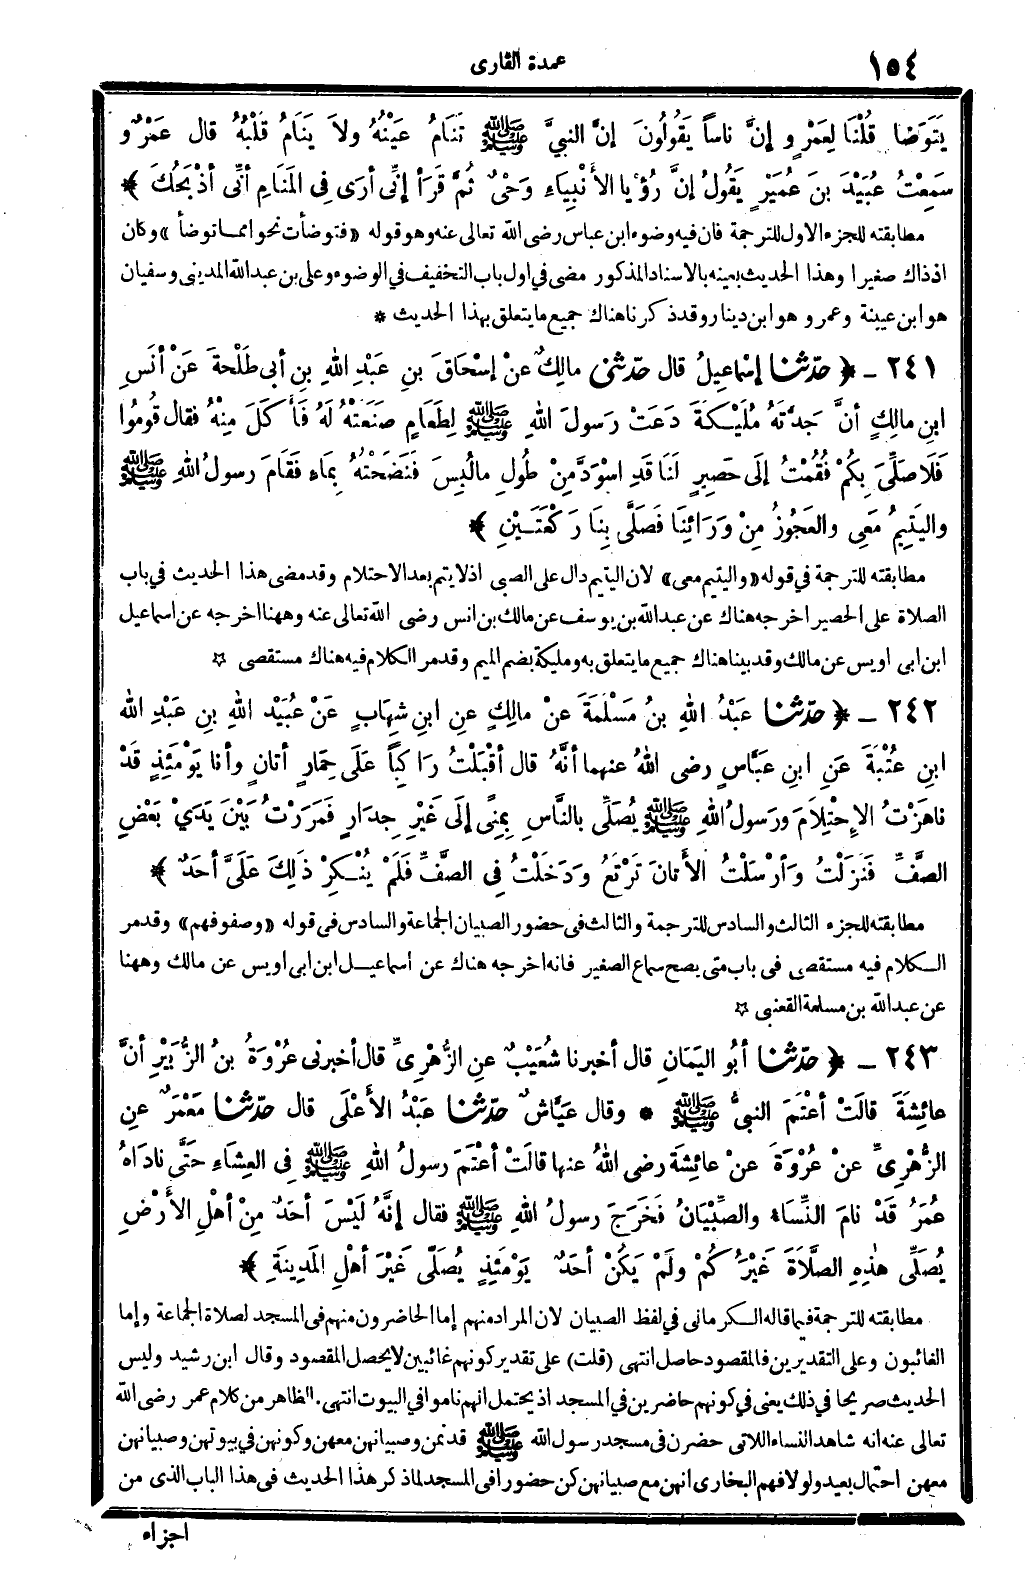 ١٥٤
عمدة القارى
يَتَوَضَّا قُلْنَا لِعَمْرٍ و إنَّ ناساً يَقُولُونَ إنَّ النبيَّ ﷺ تَنَامُ عَيْنُهُ ولاَ يَنَامُ قَلْبُهُ قال عَمْرٌ و
سَمِعْتُ عُبَيْدَ بنَ عُمَيْرٍ يَقُولُ إنَّ رُؤْيا الأَنْبِياءِ وَحْىٌ ثُمَّ قَرَأ إنِّى أرَى فِى المَنَامِ أنِّى أذْبَحُكَ ﴾
مطابقته للجزء الاول للترجمة فان فيه وضوء ابن عباس رضى الله تعالى عنه وهو قوله «فتوضأت نحوا مما توضأ» وكان
اذ ذاك صغيرا وهذا الحديث بعينه بالاسناد المذكور مضى فى اول باب التخفيف في الوضوء وعلى بن عبدالله المدينى وسفيان
هو ابن عيينة وعمرو هو ابن دينار وقد ذكرنا هناك جميع ما يتعلق بهذا الحديث *
٢٤١ - ﴿ حدّثنا إسْماعِيلُ قال حدّثنى مالِكٌ عنْ إسْحَاقَ بنِ عَبْدِ اللهِ بنِ أبى طَلْحةَ عَنْ أنَسِ
ابنِ مالِكٍ أنَّ جَدَّتَهُ مُلَيْكَةَ دَعَتْ رَسولَ اللهِ ﷺ لِطَعَامٍ صَنَعَتْهُ لَهُ فَأَكَلَ مِنْهُ فقال قُومُوا
فَلَاصَلِّىَ بِكُمْ فُقُمْتُ إلَى حَصِيرٍ لَنَا قَدِ اسْوَدَّ مِنْ طُولِ مالُبِسَ فَنَضَحْتُهُ بِمَاءٍ فَقَامَ رسولُ اللهِ ﷺ
واليَتِيمُ مَعَى والعَجُوزُ مِنْ وَرَائِنَا فَصَلَّى بِنَا رَكْعَتَـيْنِ ﴾
مطابقته للترجمة فى قوله «واليتيم معى» لان اليتيم دال على الصبى اذ لا يتم بعد الاحتلام وقد مضى هذا الحديث في باب
الصلاة على الحصير اخرجه هناك عن عبدالله بن يوسف عن مالك بن انس رضى الله تعالى عنه وههنا اخرجه عن اسماعيل
ابن ابى اويس عن مالك وقد بينا هناك جميع ما يتعلق به ومليكة بضم الميم وقد مر الكلام فيه هناك مستقصى ☆
٢٤٢ - ﴿ حدّثنا عَبْدُ اللهِ بنُ مَسْلَمَةَ عَنْ مالِكٍ عنِ ابنِ شِهَابٍ عَنْ عُبَيْدِ اللهِ بنِ عَبْدِ الله
ابنِ عُتْبَةَ عَنِ ابنِ عَبَّاسٍ رضى اللهُ عنهما أنَّهُ قال أقْبَلْتُ رَاكِباً عَلَى حِمَارٍ أتانٍ وأنا يَوْمَئِذٍ قَدْ
ناهَزْتُ الإِحْتِلَامَ ورَسولُ اللهِ ﷺ يُصَلِّى بالنَّاسِ بِمِنًى إلَى غَيْرِ جِدَارٍ فَمَرَرْتُ بَيْنَ يَدَيْ بَعْضِ
الصَّفِّ فَنَزَلْتُ وَأرْسَلْتُ الأتانَ تَرْتَعُ وَدَخَلْتُ فِى الصَّفِّ فَلَمْ يُنْكِرْ ذَلِكَ عَلَىَّ أحَدٌ ﴾
مطابقته للجزء الثالث والسادس للترجمة والثالث فى حضور الصبيان الجماعة والسادس فى قوله «وصفوفهم» وقد مر
الكلام فيه مستقصى فى باب متى يصح سماع الصغير فانه اخرجه هناك عن أسماعيل ابن ابى اويس عن مالك وههنا
عن عبدالله بن مسلمة القعنبى ☆
٢٤٣ - ﴿ حدّثنا أبُو اليَمَانِ قال أخبرنا شُعَيْبٌ عنِ الزُّهْرِىِّ قال أخبرنى عُرْوَةُ بنُ الزُّبَيْرِ أنَّ
عائِشَةَ قالَتْ أعْتَمَ النبيُّ ﷺ * وقال عَيَّاشٌ حدّثنا عَبْدُ الأَعْلَى قال حدّثنا مَعْمَرٌ عنِ
الزُّهْرِىِّ عنْ عُرْوَةَ عنْ عائِشَةَ رضى اللهُ عنها قالَتْ أعتَمَ رسولُ اللهِ ﷺ فِى العِشَاءِ حَتَّى نادَاهُ
عُمَرُ قَدْ نامَ النِّسَاءُ والصِّبْيَانُ فَخَرَجَ رسولُ اللهِ ﷺ فقال إنَّهُ لَيْسَ أحَدٌ مِنْ أهْلِ الأَرْضِ
يُصَلِّى هذِهِ الصَّلَاةَ غَيْرُكُمْ ولَمْ يَكُنْ أحَدٌ يَوْمَئِذٍ يُصَلّى غَيْرَ أهْلِ المَدِينَةِ ﴾
مطابقته للترجمة فيما قاله الكرمانى فى لفظ الصبيان لان المراد منهم إما الحاضرون منهم فى المسجد لصلاة الجماعة وإما
الغائبون وعلى التقديرين فالمقصود حاصل انتهى (قلت) على تقدير كونهم غائبين لا يحصل المقصود وقال ابن رشيد وليس
الحديث صريحا فى ذلك يعنى فى كونهم حاضرين في المسجد اذ يحتمل انهم ناموا فى البيوت انتهى. الظاهر من كلام عمر رضى الله
تعالى عنه انه شاهد النساء اللاتى حضرن فى مسجد رسول الله ﷺ قد نمن وصبيانهن معهن وكونهن فى بيوتهن وصبيانهن
معهن احتمال بعيد ولولا فهم البخارى انهن مع صبيانهن كن حضورا فى المسجد لما ذكر هذا الحديث فى هذا الباب الذى من
اجزاء